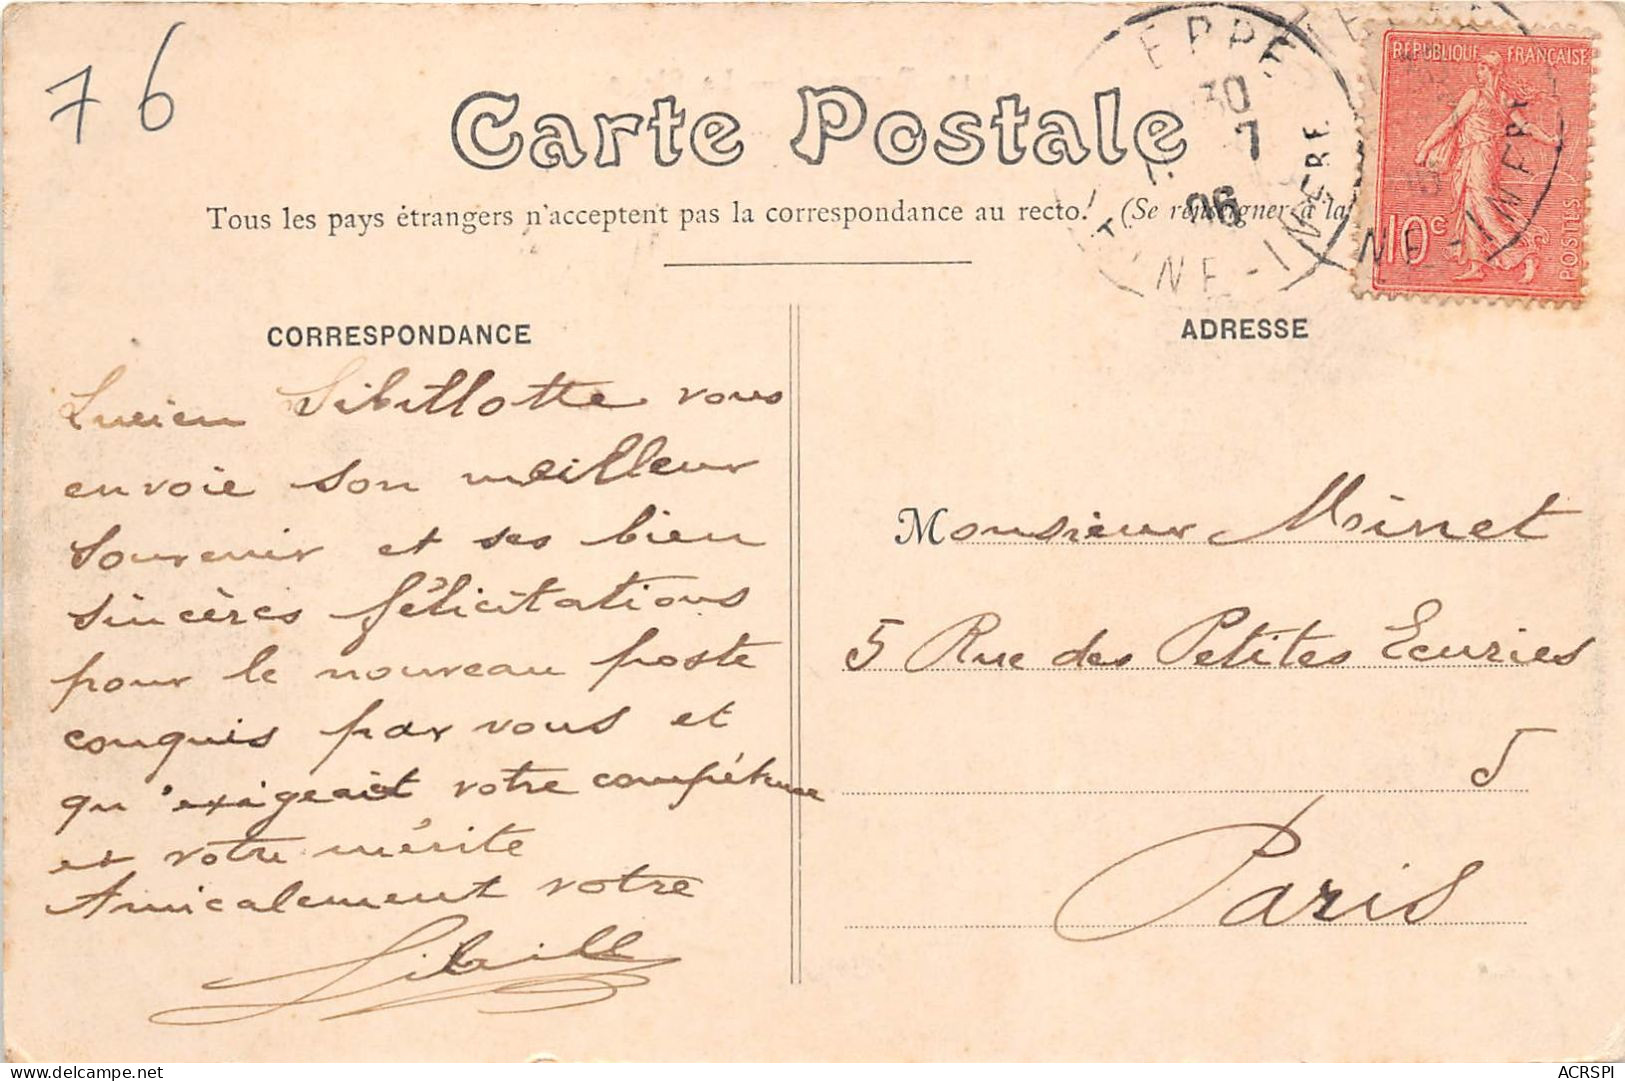 76
Carte Postale
Tous les pays étrangers n'acceptent pas la correspondance au recto. (Se renseigner à la
EPPE
30
7
06
INFRE
NF-INFRE
RÉPUBLIQUE FRANÇAISE
10c
POSTES
CORRESPONDANCE
Lucien Sibillotte vous
envoie son meilleur
souvenir et ses bien
sincères félicitations
pour le nouveau poste
conquis par vous et
qu'exigeait votre compétence
et votre mérite
Amicalement votre
Sibill
ADRESSE
Monsieur Minet
5 Rue des Petites Ecuries
5
Paris
ACRSPI
delcampe.net